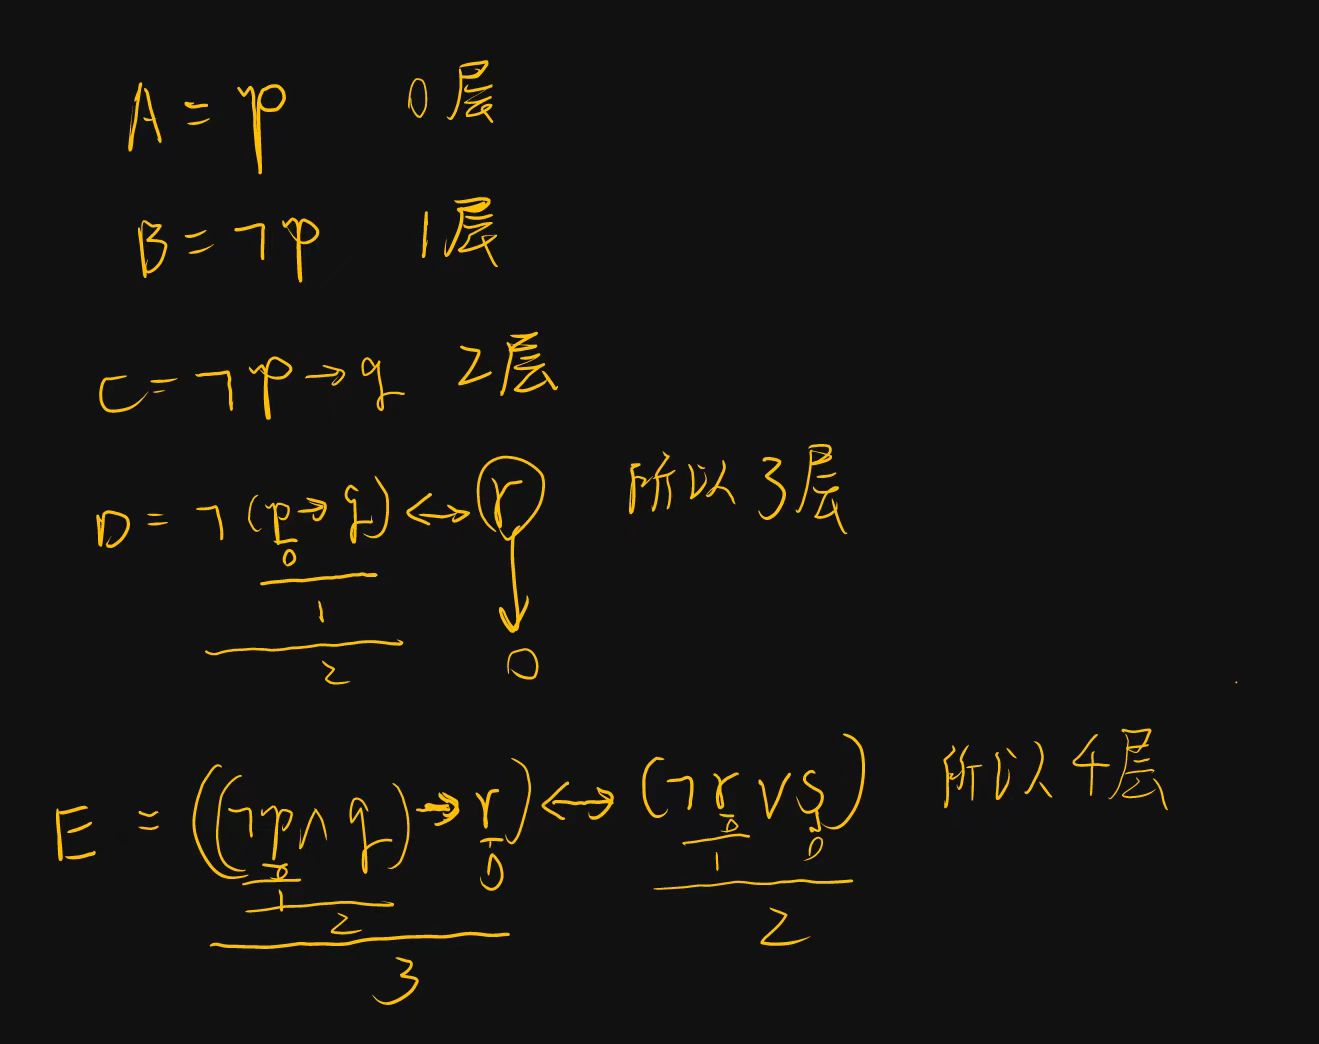 A = p 0层
B = ¬p 1层
C = ¬p → q 2层
D = ¬(p → q) ↔ r 所以3层
0
1
2 0
E = ((¬p ∧ q) → r) ↔ (¬r ∨ s) 所以4层
0 0 0 0
1 1
2 2
3